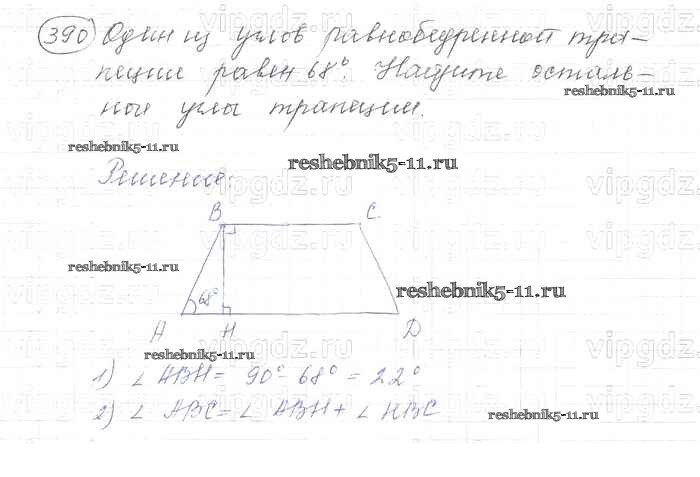 390 Один из углов равнобедренной тра-
пеции равен 68°. Найдите осталь-
reshebnik5-11.ru
ные углы трапеции.
reshebnik5-11.ru
reshebnik5-11.ru
Решение:
vipgdz.ru
B C
reshebnik5-11.ru
68°
reshebnik5-11.ru
A H D
reshebnik5-11.ru
1) ∠ ABH = 90° - 68° = 22°
2) ∠ ABC = ∠ ABH + ∠ HBC
reshebnik5-11.ru